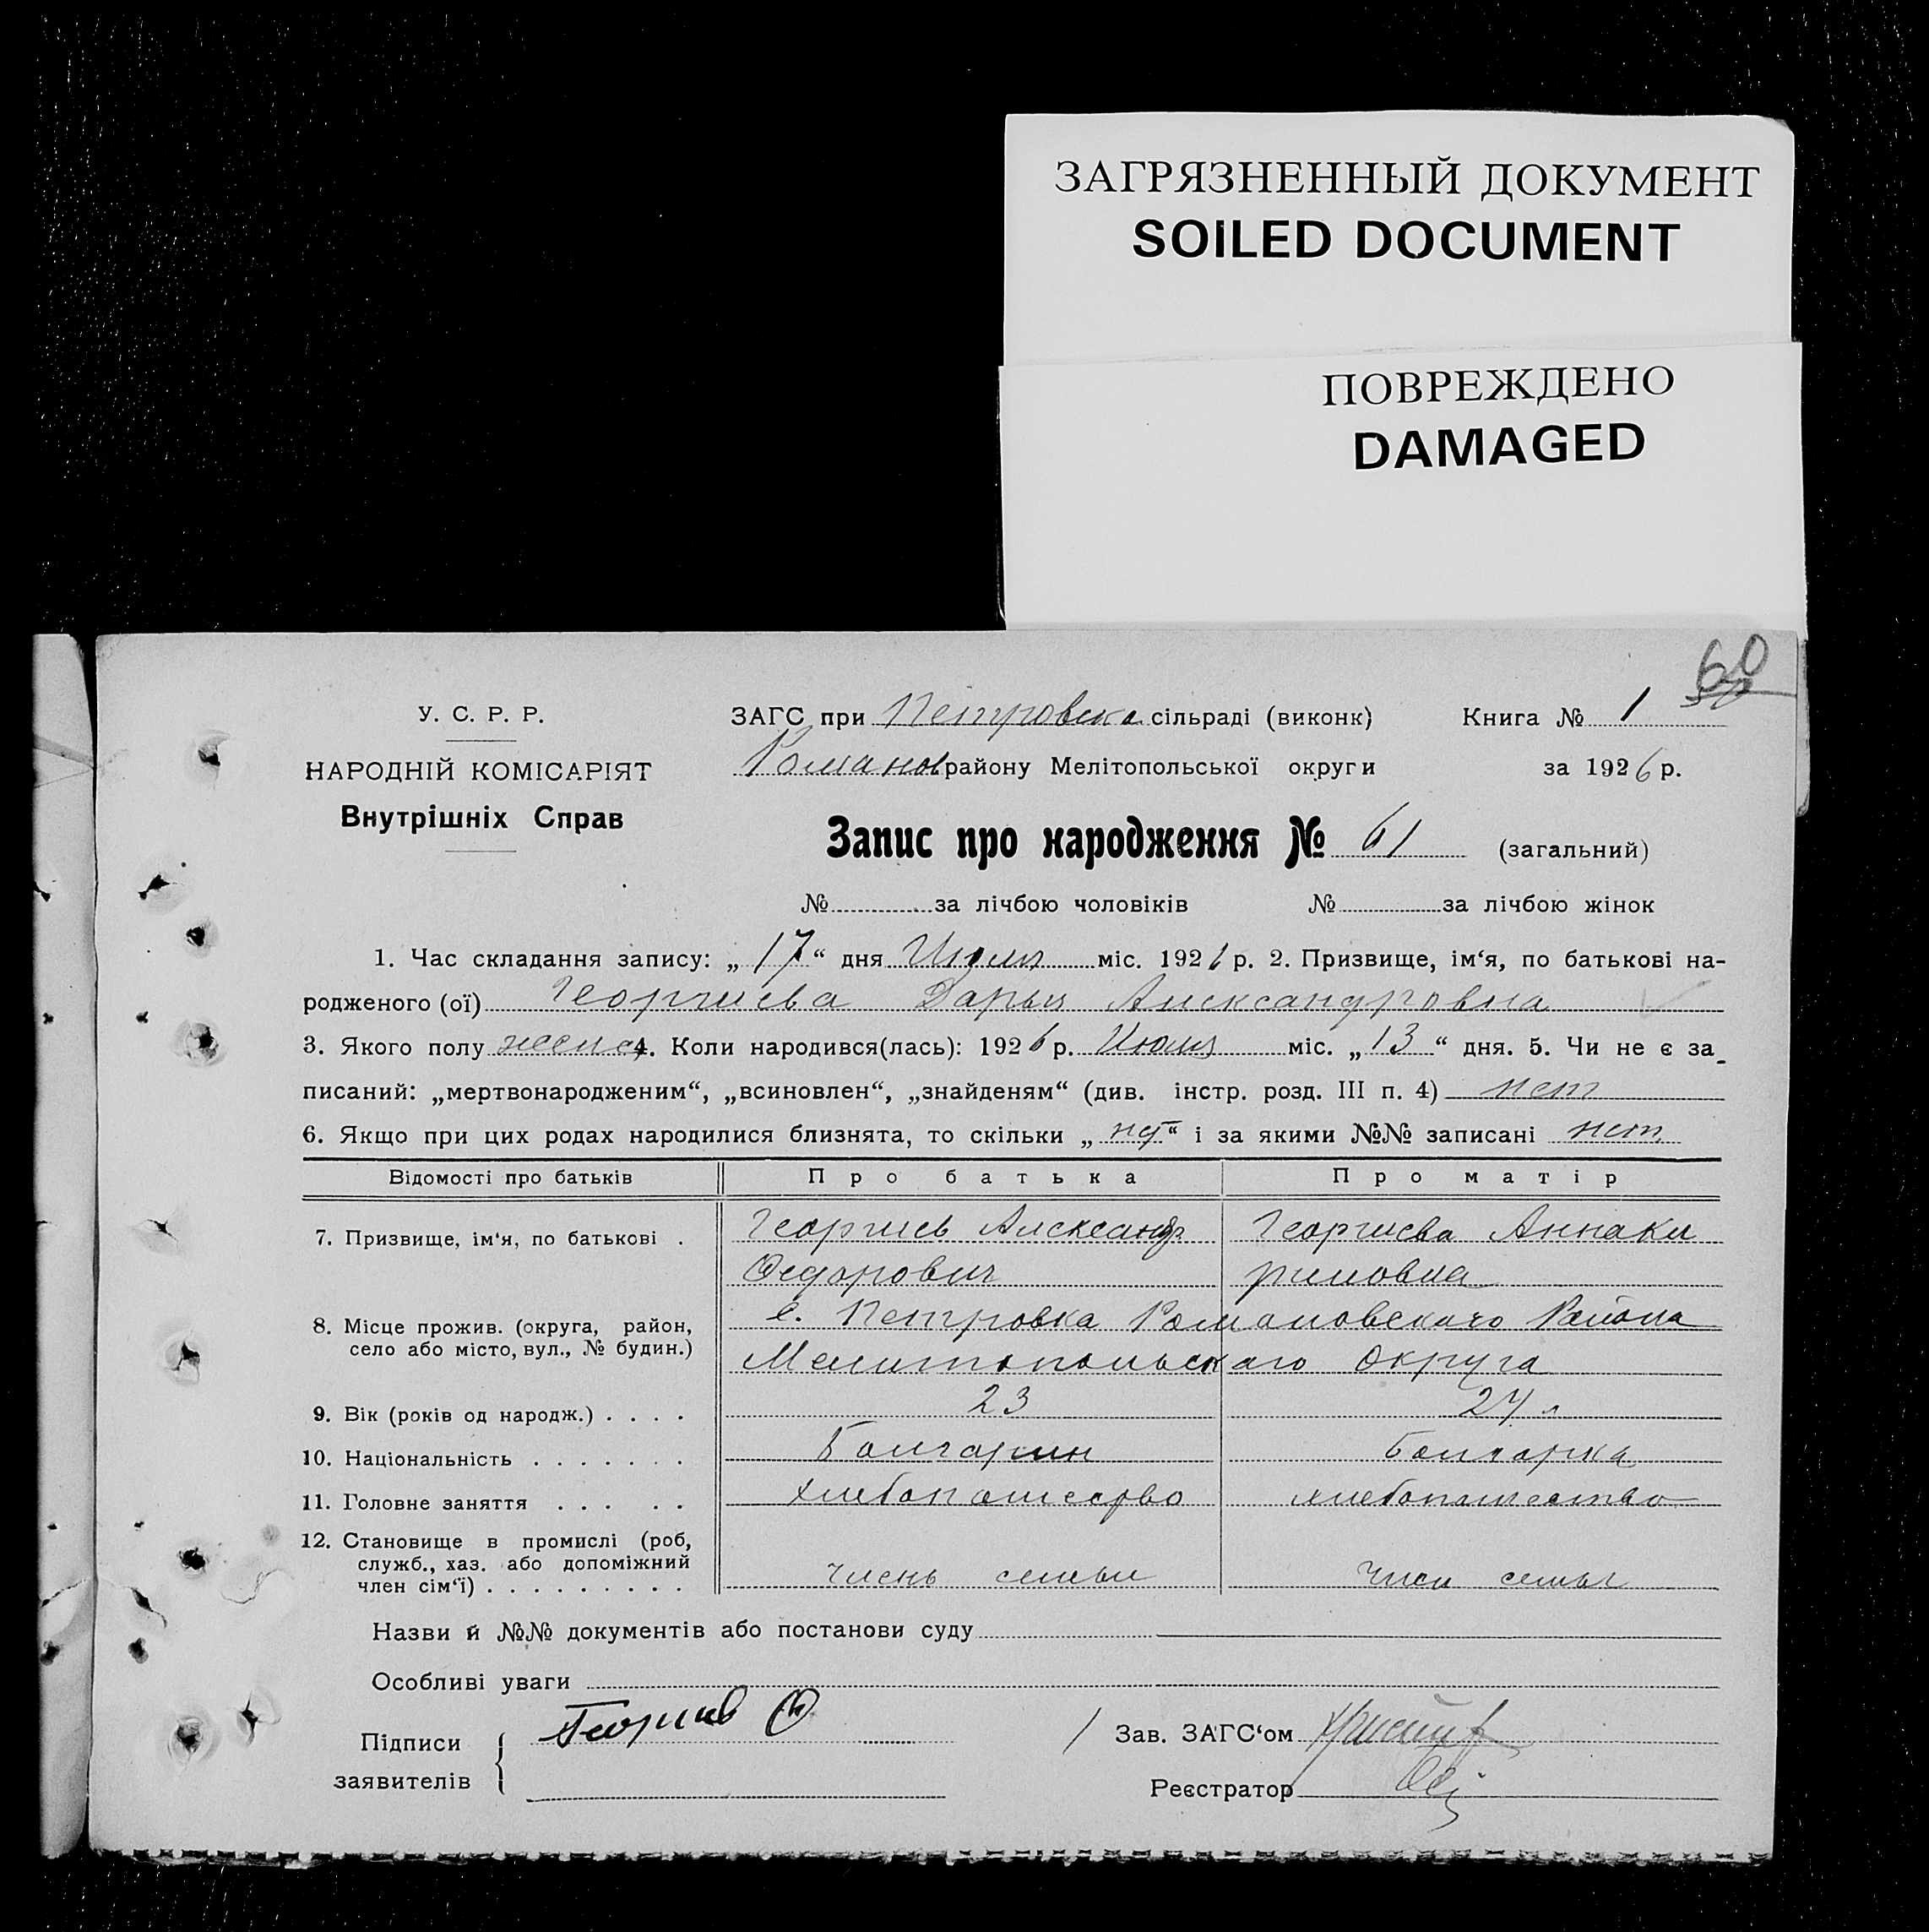 ЗАГРЯЗНЕННЫЙ ДОКУМЕНТ
SOILED DOCUMENT
ПОВРЕЖДЕНО
DAMAGED
60
У. С. Р. Р.
НАРОДНІЙ КОМІСАРІЯТ
Внутрішніх Справ
ЗАГС при Петровска сільраді (виконк) Книга № 1
Романов району Мелітопольської округи за 1926 р.
Запис про народження № 61 (загальний)
№ за лічбою чоловіків № за лічбою жінок
1. Час складання запису: „17“ дня Июля міс. 1926 р. 2. Призвище, ім‘я, по батькові на-
родженого (ої) Георгиева Дарья Александровна
3. Якого полу женс 4. Коли народився(лась): 1926 р. Июля міс. „13“ дня. 5. Чи не є за-
писаний: „мертвонародженим“, „всиновлен“, „знайденям“ (див. інстр. розд. III п. 4) нет
6. Якщо при цих родах народилися близнята, то скільки „нет“ і за якими №№ записані нет
Відомості про батьків Про батька Про матір
7. Призвище, ім‘я, по батькові . Георгиев Александр Георгиева Аннаки
Федорович риловна
8. Місце прожив. (округа, район, село або місто, вул., № будин.) с. Петровка Романовского Района
Мелитопольскаго Округа
9. Вік (років од народж.) . . . . 23 24 л
10. Національність . . . . . . . Болгарин болгарка
11. Головне заняття . . . . . хлебопашество хлебопашество
12. Становище в промислі (роб,
служб., хаз. або допоміжний
член сім‘ї) . . . . . . . . . член семьи член семьи
Назви й №№ документів або постанови суду
Особливі уваги
Підписи заявителів Георгиев Зав. ЗАГС‘ом
Реєстратор